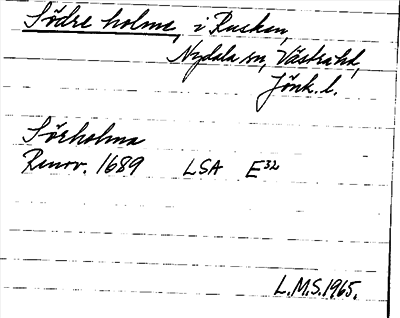 Södre holme, i Rusken,
Nydala sn, Västra hd,
Jönk. l.
Sörholma
Renov. 1689 LSA E³²
L.M.S. 1965.